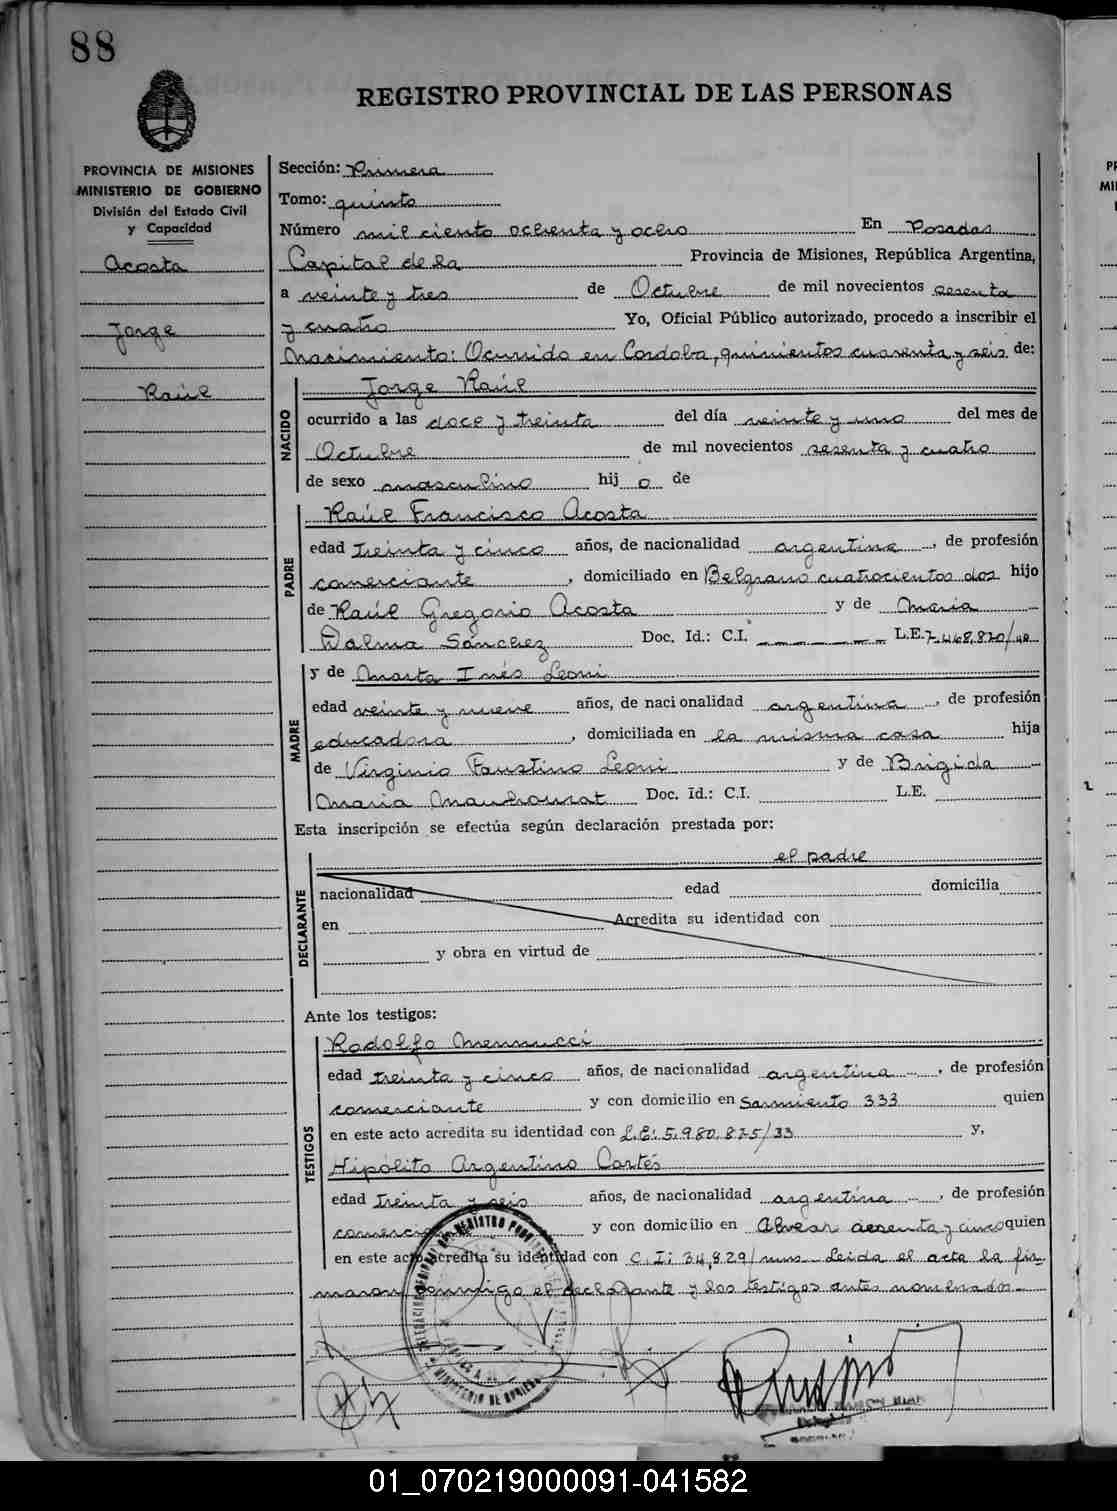 88
REGISTRO PROVINCIAL DE LAS PERSONAS
PROVINCIA DE MISIONES
MINISTERIO DE GOBIERNO
División del Estado Civil
y Capacidad
Acosta
Jorge
Raúl
Sección: Primera
Tomo: quinto
Número mil ciento ochenta y ocho En Posadas
Capital de la Provincia de Misiones, República Argentina,
a veinte y tres de Octubre de mil novecientos sesenta
y cuatro Yo, Oficial Público autorizado, procedo a inscribir el
Nacimiento: Ocurrido en Cordoba, quinientos cuarenta y seis de:
NACIDO
Jorge Raúl
ocurrido a las doce y treinta del día veinte y uno del mes de
Octubre de mil novecientos sesenta y cuatro
de sexo masculino hij o de
PADRE
Raúl Francisco Acosta
edad treinta y cinco años, de nacionalidad argentina, de profesión
comerciante, domiciliado en Belgrano cuatrocientos dos hijo
de Raúl Gregorio Acosta y de Maria
Dalma Sánchez Doc. Id.: C.I. L.E. 7.468.820/
MADRE
y de Marta Inés Leoni
edad veinte y nueve años, de nacionalidad argentina, de profesión
educadora, domiciliada en la misma casa hija
de Virginio Faustino Leoni y de Brigida
Maria Mauhourat Doc. Id.: C.I. L.E.
Esta inscripción se efectúa según declaración prestada por:
DECLARANTE
el padre
nacionalidad edad domicilia
en Acredita su identidad con
y obra en virtud de
Ante los testigos:
TESTIGOS
Rodolfo Mennucci
edad treinta y cinco años, de nacionalidad argentina, de profesión
comerciante y con domicilio en Sarmiento 333 quien
en este acto acredita su identidad con L.E: 5.980.875/33 y,
Hipólito Argentino Cortés
edad treinta y seis años, de nacionalidad argentina, de profesión
y con domicilio en Alvear sesenta y cinco quien
en este acto acredita su identidad con C.I: 34,829/mns. Leida el acta la fir-
maron conmigo el declarante y los testigos antes nombrados.
01_070219000091-041582